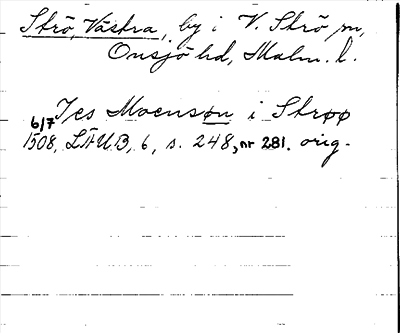 Strö, Västra, by i V. Strö sn,
Onsjö hd, Malm. l.
Jes Moensøn i Strøø
6/7 1508, LÄUB, 6, s. 248, nr 281. orig.